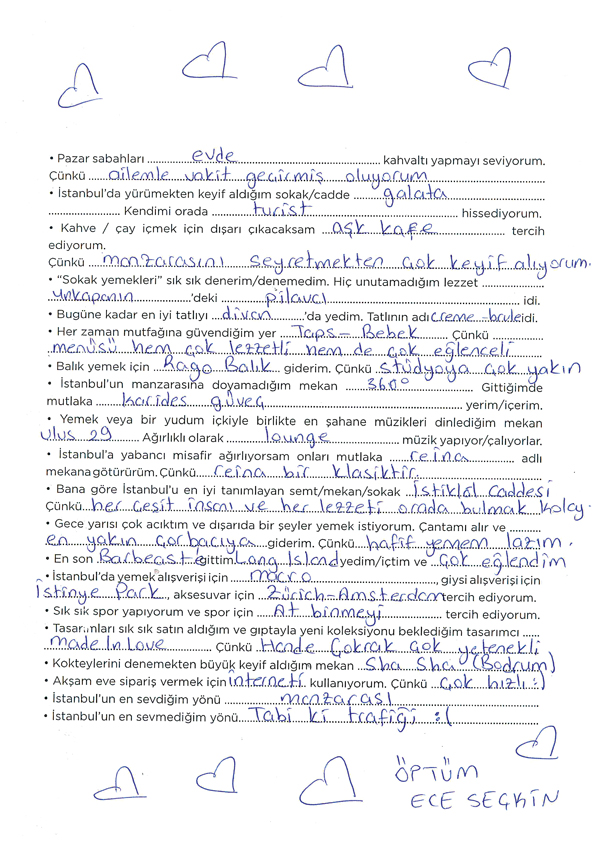 • Pazar sabahları evde kahvaltı yapmayı seviyorum.
Çünkü ailemle vakit geçirmiş oluyorum
• İstanbul'da yürümekten keyif aldığım sokak/cadde galata
Kendimi orada turist hissediyorum.
• Kahve / çay içmek için dışarı çıkacaksam aşk kafe tercih
ediyorum.
Çünkü manzarasını seyretmekten çok keyif alıyorum.
• "Sokak yemekleri" sık sık denerim/denemedim. Hiç unutamadığım lezzet
unkapanın 'deki pilavcı idi.
• Bugüne kadar en iyi tatlıyı divan 'da yedim. Tatlının adı creme-brule idi.
• Her zaman mutfağına güvendiğim yer Taps-Bebek Çünkü
menüsü hem çok lezzetli hem de çok eğlenceli
• Balık yemek için Rago Balık giderim. Çünkü stüdyoya çok yakın
• İstanbul'un manzarasına doyamadığım mekan 360° Gittiğimde
mutlaka karides güveç yerim/içerim.
• Yemek veya bir yudum içkiyle birlikte en şahane müzikleri dinlediğim mekan
ulus 29 Ağırlıklı olarak lounge müzik yapıyor/çalıyorlar.
• İstanbul'a yabancı misafir ağırlıyorsam onları mutlaka reina adlı
mekana götürürüm. Çünkü reina bir klasiktir.
• Bana göre İstanbul'u en iyi tanımlayan semt/mekan/sokak istiklal caddesi
Çünkü her çeşit insanı ve her lezzeti orada bulmak kolay.
• Gece yarısı çok acıktım ve dışarıda bir şeyler yemek istiyorum. Çantamı alır ve
en yakın çorbacıya giderim. Çünkü hafif yemem lazım.
• En son Barbeast'e gittim Long Island yedim/içtim ve çok eğlendim
• İstanbul'da yemek alışverişi için macro, giysi alışverişi için
istinye Park, aksesuvar için Zürich-Amsterdam tercih ediyorum.
• Sık sık spor yapıyorum ve spor için At binmeyi tercih ediyorum.
• Tasarımları sık sık satın aldığım ve gıptayla yeni koleksiyonu beklediğim tasarımcı
made In Love Çünkü Hande Çokrak çok yetenekli
• Kokteylerini denemekten büyük keyif aldığım mekan Sha Sha (Bodrum)
• Akşam eve sipariş vermek için interneti kullanıyorum. Çünkü çok hızlı :)
• İstanbul'un en sevdiğim yönü manzarası
• İstanbul'un en sevmediğim yönü Tabi ki trafiği :(
ÖPTÜM
ECE SEÇKİN